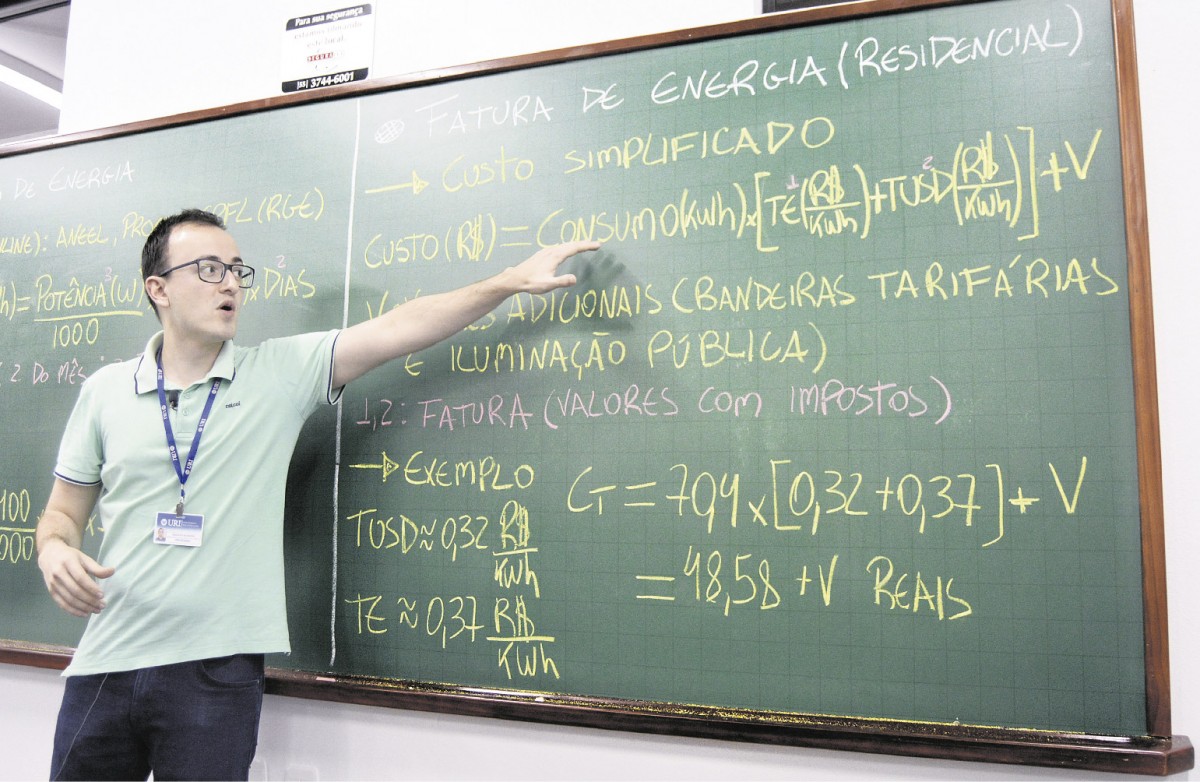 Para sua segurança
estamos filmando
este local.
(55) 3744-6001
DE ENERGIA
ANEEL,
(RGE)
POTÊNCIA³(W)
1000
×DIAS²
2 DO MÊS
FATURA DE ENERGIA (RESIDENCIAL)
→ CUSTO SIMPLIFICADO
CUSTO (R$) = CONSUMO(KWh)×[TE¹(R$/KWh)+TUSD²(R$/KWh)]+V
ADICIONAIS (BANDEIRAS TARIFÁRIAS
E ILUMINAÇÃO PÚBLICA)
1,2: FATURA (VALORES COM IMPOSTOS)
→ EXEMPLO
TUSD ≈ 0,32 R$/KWh
TE ≈ 0,37 R$/KWh
CT = 70,4 × [0,32 + 0,37] + V
= 48,58 + V REAIS
URI